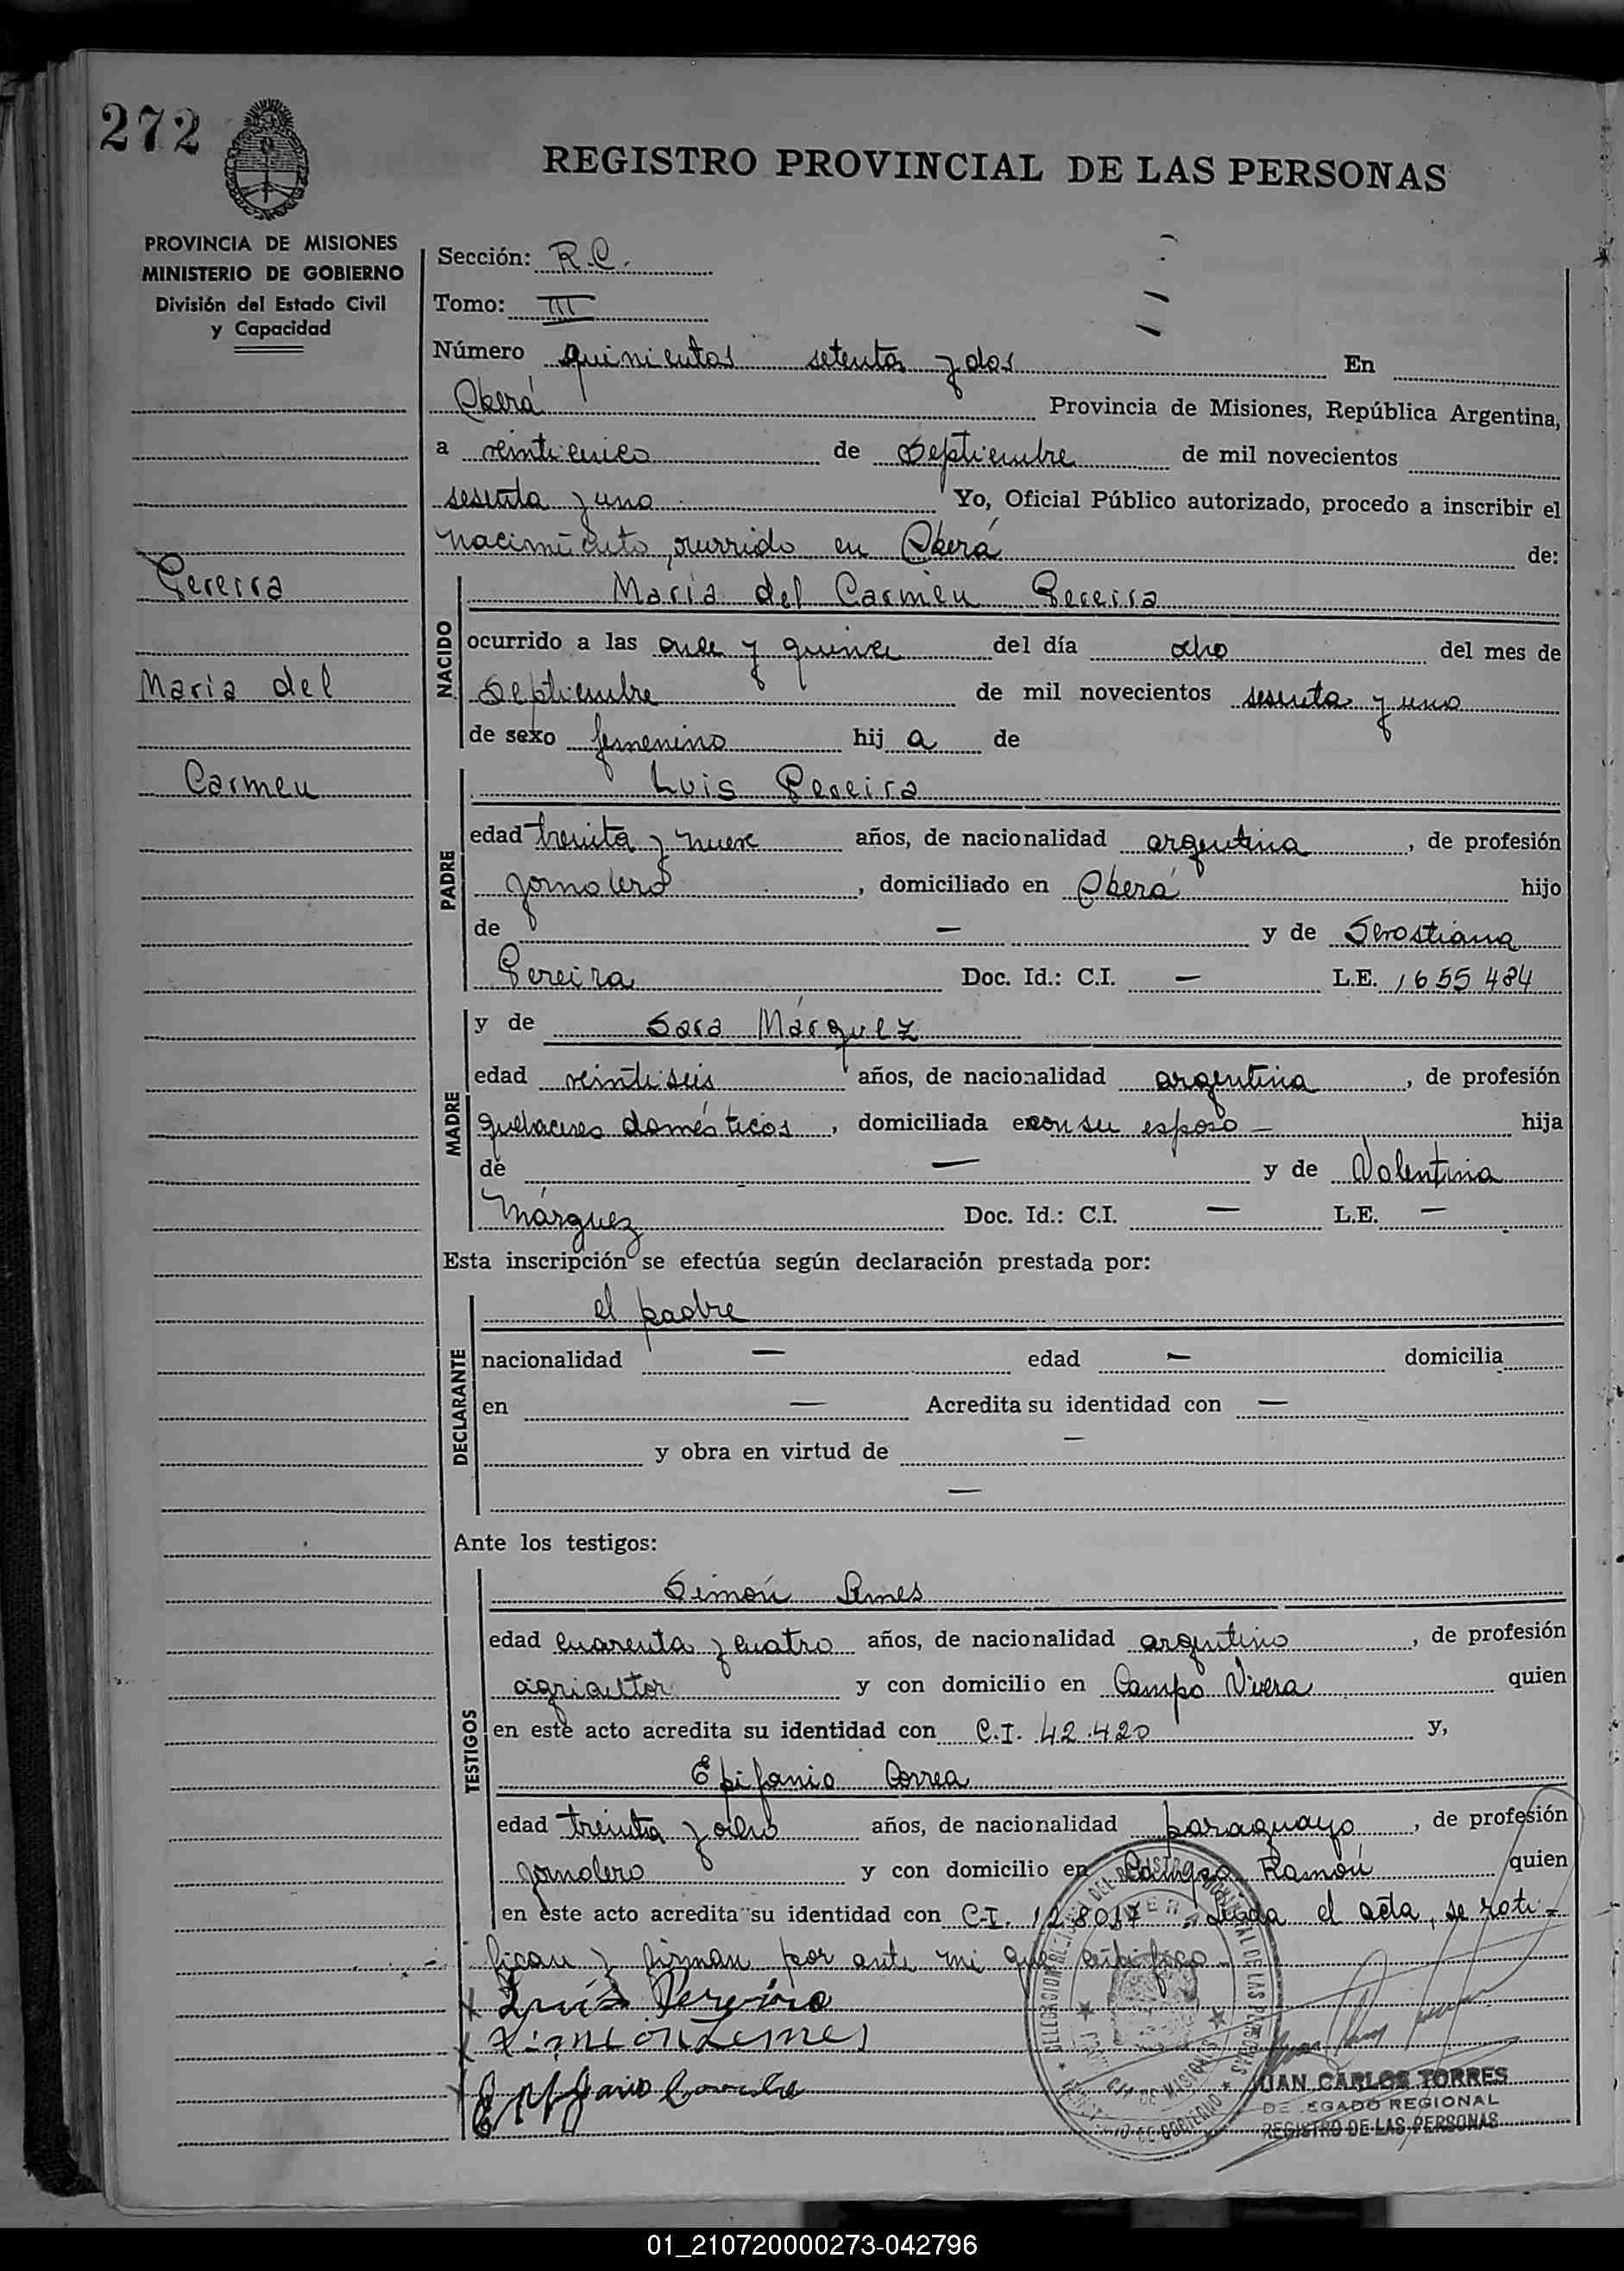 272
REGISTRO PROVINCIAL DE LAS PERSONAS
PROVINCIA DE MISIONES
MINISTERIO DE GOBIERNO
División del Estado Civil
y Capacidad
Pereira
Maria del
Carmen
Sección: R.C.
Tomo: III
Número quinientos setenta y dos En
Oberá Provincia de Misiones, República Argentina,
a veinticinco de Septiembre de mil novecientos
sesenta y uno Yo, Oficial Público autorizado, procedo a inscribir el
nacimiento, ocurrido en Oberá de:
NACIDO
Maria del Carmen Pereira
ocurrido a las once y quince del día ocho del mes de
Septiembre de mil novecientos sesenta y uno
de sexo femenino hij a de
PADRE
Luis Pereira
edad treinta y nueve años, de nacionalidad argentina, de profesión
jornalero, domiciliado en Oberá hijo
de — y de
Pereira Doc. Id.: C.I. — L.E. 1655484
MADRE
y de Sara Márquez
edad veintiseis años, de nacionalidad argentina, de profesión
quehaceres domésticos, domiciliada en con su esposo — hija
de — y de Valentina
Márquez Doc. Id.: C.I. — L.E. —
Esta inscripción se efectúa según declaración prestada por:
DECLARANTE
el padre
nacionalidad — edad — domicilia
en — Acredita su identidad con —
y obra en virtud de —
—
Ante los testigos:
TESTIGOS
Simón
edad cuarenta y cuatro años, de nacionalidad argentino, de profesión
agricultor y con domicilio en Campo Viera quien
en este acto acredita su identidad con C.I. 42.420 y,
Epifanio Correa
edad treinta y ocho años, de nacionalidad paraguayo, de profesión
jornalero y con domicilio en Campo Ramón quien
en este acto acredita su identidad con C.I. 128037, Leida el acta, se rati-
fican y firman por ante mi que certifico
Luis Pereira
JUAN CARLOS TORRES
DELEGADO REGIONAL
REGISTRO DE LAS PERSONAS
01_210720000273-042796